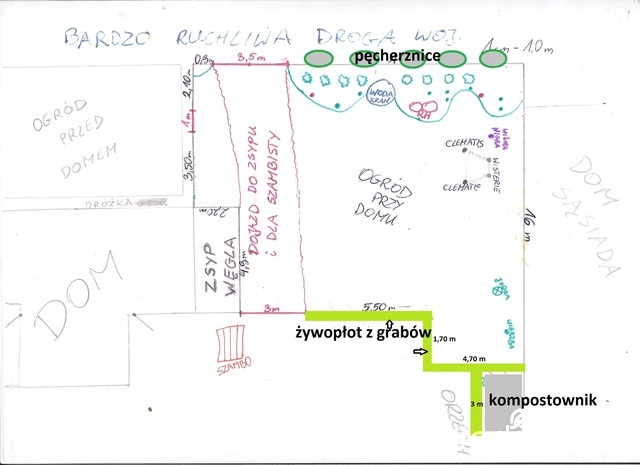 BARDZO RUCHLIWA DROGA WOJ.
1cm - 1.0m
pęcherznice
0,9m
3,5m
2,10m
1m
3,50m
OGRÓD
PRZED
DOMEM
WODA
KRAN
RH
CLEMATIS
WISTERIE
CLEMATIS
DOJAZD DO ZSYPU
i DLA SZAMBISTY
OGRÓD
PRZY
DOMU
DOM
SĄSIADA
16 m
DRÓŻKA
ZSYP
WĘGLA
4,9m
DOM
3m
5.50 m
żywopłot z grabów
1,70 m
4,70 m
WIERZBA
SZAMBO
ORZECH
3 m
kompostownik